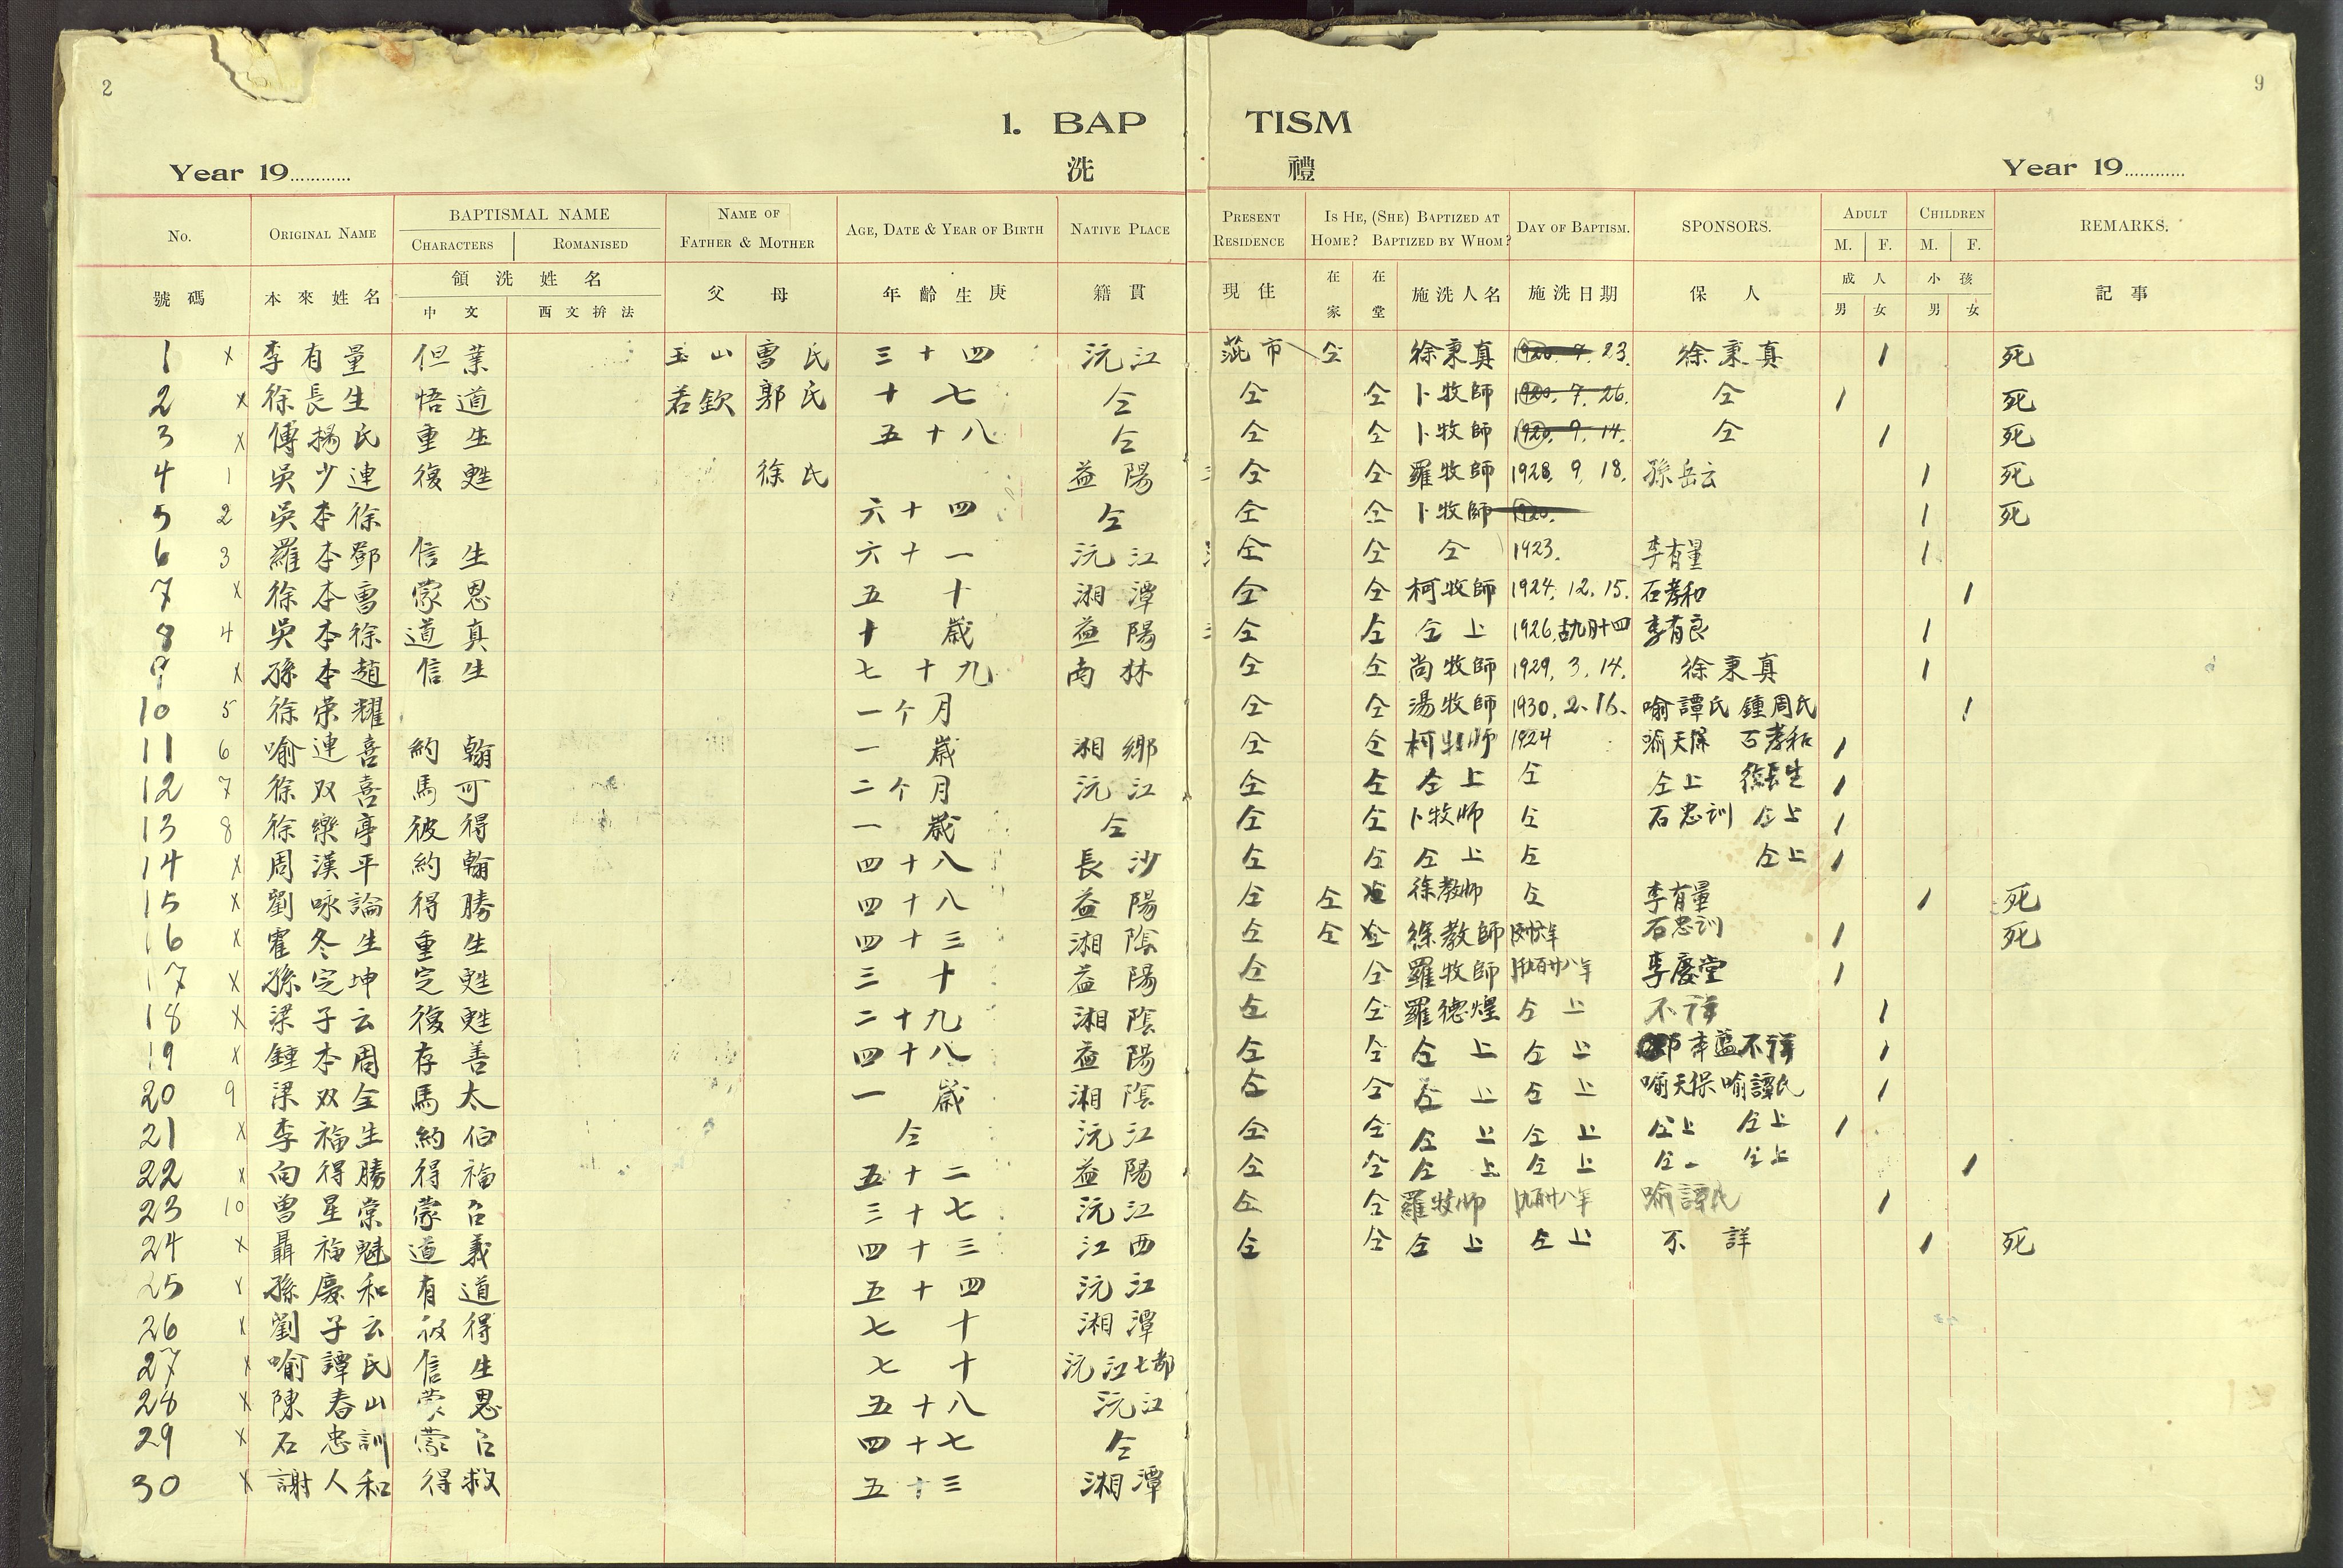 2
9
1. BAP TISM
洗 禮
Year 19............ Year 19............
No. ORIGINAL NAME BAPTISMAL NAME CHARACTERS ROMANISED NAME OF FATHER & MOTHER AGE, DATE & YEAR OF BIRTH NATIVE PLACE PRESENT RESIDENCE IS HE, (SHE) BAPTIZED AT HOME? BAPTIZED BY WHOM? DAY OF BAPTISM. SPONSORS. ADULT M. F. CHILDREN M. F. REMARKS.
號碼 本來姓名 領洗姓名 中文 西文拚法 父母 年齡生庚 籍貫 現住 在家 在堂 施洗人名 施洗日期 保人 成人 男 女 小孩 男 女 記事
1 x 李有量 但業 玉山 曹氏 三十四 沅江 市 仝 徐秉真 1920. 7. 23. 徐秉真 1 死
2 x 徐長生 悟道 若欽 郭氏 十七 仝 仝 仝 卜牧師 1920. 7. 26. 仝 1 死
3 x 傅楊氏 重生 五十八 仝 仝 仝 卜牧師 1920. 9. 14. 仝 1 死
4 1 吳少連 復甦 徐氏 益陽 仝 仝 羅牧師 1928. 9. 18. 孫岳云 1 死
5 2 吳本徐 六十四 仝 仝 仝 卜牧師 1920. 1 死
6 3 羅本鄧 信生 六十一 沅江 仝 仝 仝 1923. 李有量 1
7 x 徐本曹 蒙恩 五十 湘潭 仝 仝 柯牧師 1924. 12. 15. 石孝和 1
8 4 吳本徐 道真 十歲 益陽 仝 仝 仝上 1926, 李有良 1
9 x 孫本趙 信生 七十九 南林 仝 仝 尚牧師 1929. 3. 14. 徐秉真 1
10 5 徐荣耀 一个月 仝 仝 湯牧師 1930. 2. 16. 喻譚氏 鍾周氏 1
11 6 喻連喜 約翰 一歲 湘鄉 仝 仝 柯牧师 1924 喻天保 石孝和 1
12 7 徐双喜 馬可 二个月 沅江 仝 仝 仝上 仝 仝上 徐長生 1
13 8 徐樂亭 彼得 一歲 仝 仝 仝 卜牧师 仝 石忠训 仝上 1
14 x 周漢平 約翰 四十八 長沙 仝 仝 仝上 仝 仝上 1
15 x 劉咏論 得勝 四十八 益陽 仝 仝 徐教师 仝 李有量 1 死
16 x 霍冬生 重生 四十三 湘陰 仝 仝 仝 徐教師 石忠訓 1 死
17 x 孫定坤 定甦 三十 益陽 仝 仝 羅牧師 李慶堂 1
18 x 梁子云 復甦 二十九 湘陰 仝 仝 羅德煌 仝上 不详 1
19 x 鍾本周 存善 四十八 益陽 仝 仝 仝上 仝上 不详 1
20 9 梁双全 馬太 一歲 湘陰 仝 仝 仝上 仝上 喻天保 喻譚氏 1
21 x 李福生 約伯 仝 沅江 仝 仝 仝上 仝上 仝上 仝上 1
22 x 向得勝 得福 五十二 益陽 仝 仝 仝上 仝上 仝上 仝上 1
23 10 曾星棠 蒙召 三十七 沅江 仝 仝 羅牧师 喻譚氏 1
24 x 聶福魁 道義 四十三 江西 仝 仝 仝上 仝上 不詳 1 死
25 x 孫慶和 有道 五十四 沅江
26 x 劉子云 彼得 七十 湘潭
27 x 喻譚氏 信生 七十 沅江七都
28 x 陳春山 蒙恩 五十八 沅江
29 x 石忠訓 蒙召 四十七 仝
30 x 謝人和 得救 五十三 湘潭